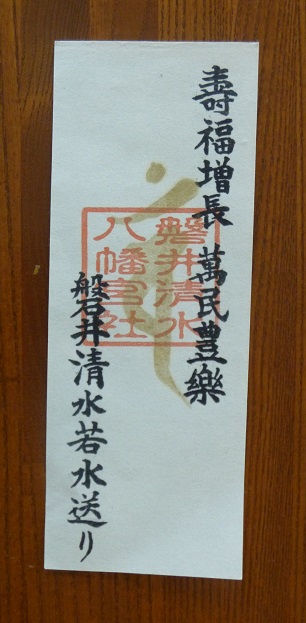 壽福增長 萬民豊樂
磐井清水若水送り
磐井清水
八幡宮社